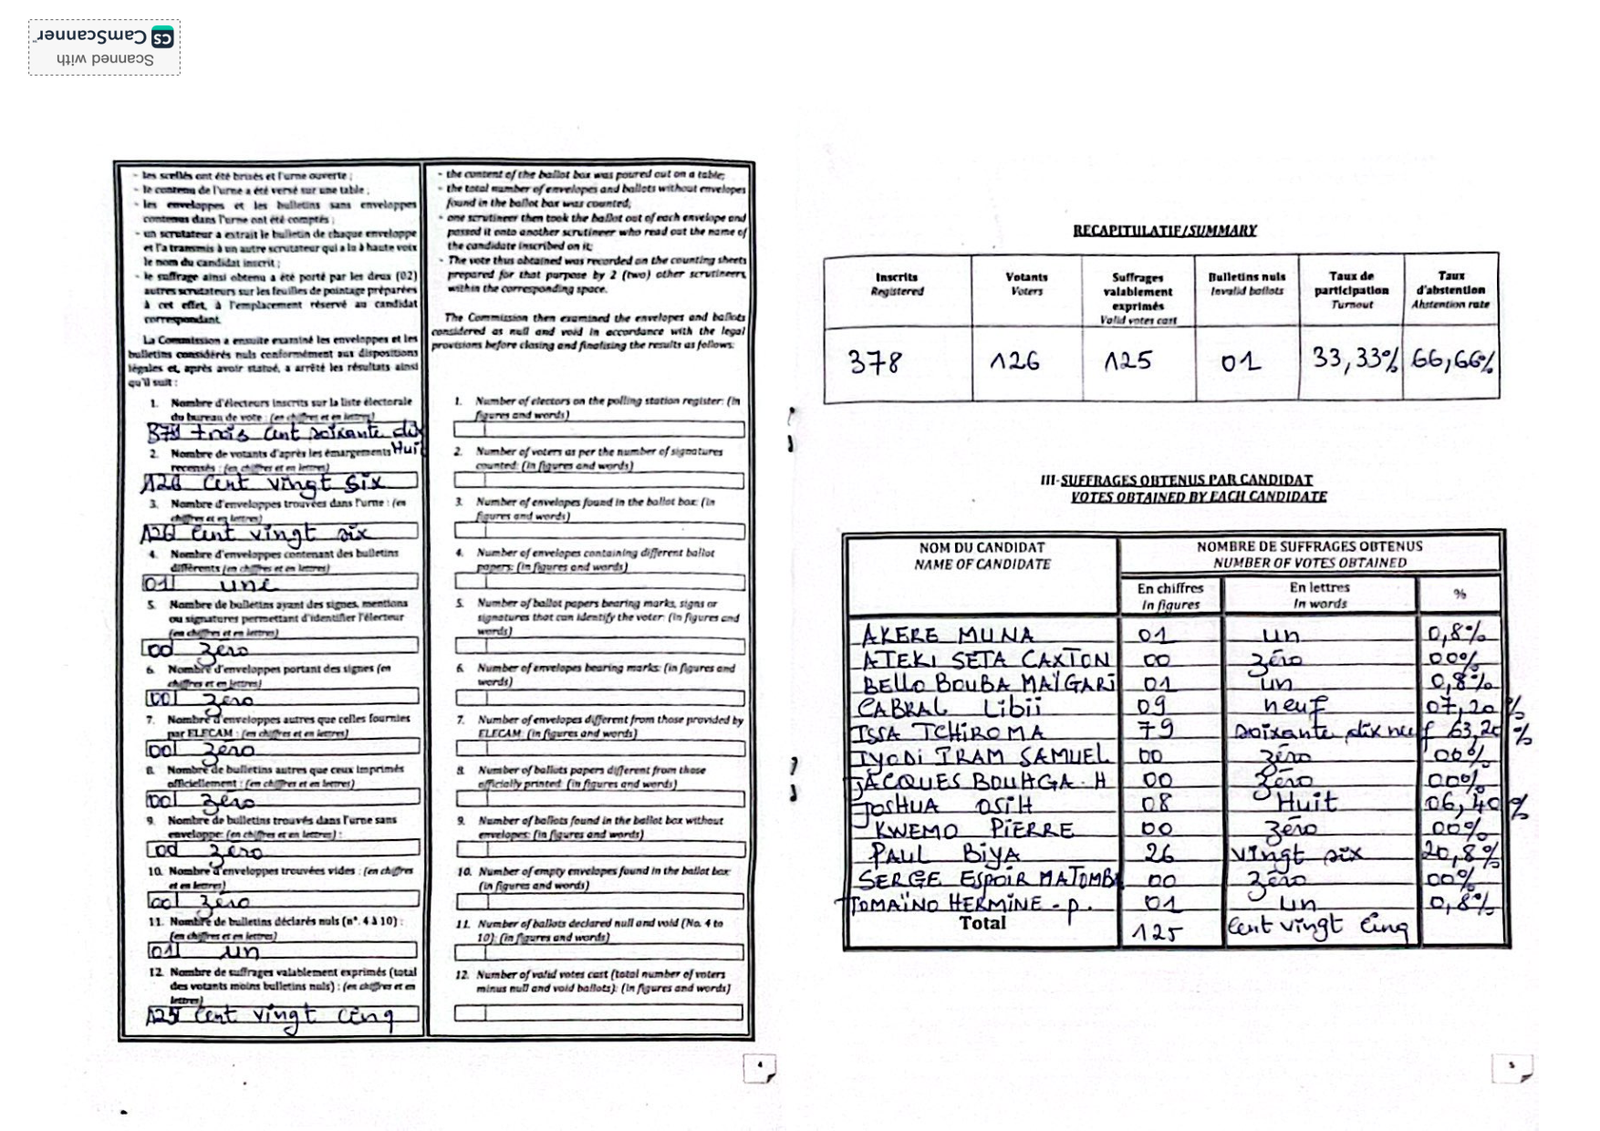 Scanned with
CS CamScanner
- les scellés ont été brisés et l'urne ouverte ;
- le contenu de l'urne a été versé sur une table ;
- les enveloppes et les bulletins sans enveloppes
contenus dans l'urne ont été comptés ;
- un scrutateur a extrait le bulletin de chaque enveloppe
et l'a transmis à un autre scrutateur qui a lu à haute voix
le nom du candidat inscrit ;
- le suffrage ainsi obtenu a été porté par les deux (02)
autres scrutateurs sur les feuilles de pointage préparées
à cet effet, à l'emplacement réservé au candidat
correspondant.
La Commission a ensuite examiné les enveloppes et les
bulletins considérés nuls conformément aux dispositions
légales et, après avoir statué, a arrêté les résultats ainsi
qu'il suit :
1. Nombre d'électeurs inscrits sur la liste électorale
du bureau de vote : (en chiffres et en lettres)
378 trois cent soixante dix
Huit
2. Nombre de votants d'après les émargements
recensés : (en chiffres et en lettres)
126 cent vingt six
3. Nombre d'enveloppes trouvées dans l'urne : (en
chiffres et en lettres)
126 cent vingt six
4. Nombre d'enveloppes contenant des bulletins
différents (en chiffres et en lettres)
01 une
5. Nombre de bulletins ayant des signes, mentions
ou signatures permettant d'identifier l'électeur
(en chiffres et en lettres)
00 zéro
6. Nombre d'enveloppes portant des signes (en
chiffres et en lettres)
00 zéro
7. Nombre d'enveloppes autres que celles fournies
par ELECAM : (en chiffres et en lettres)
00 zéro
8. Nombre de bulletins autres que ceux imprimés
officiellement : (en chiffres et en lettres)
00 zéro
9. Nombre de bulletins trouvés dans l'urne sans
enveloppe: (en chiffres et en lettres) :
00 zéro
10. Nombre d'enveloppes trouvées vides : (en chiffres
et en lettres)
00 zéro
11. Nombre de bulletins déclarés nuls (n°. 4 à 10) :
(en chiffres et en lettres)
01 un
12. Nombre de suffrages valablement exprimés (total
des votants moins bulletins nuls) : (en chiffres et en
lettres)
125 cent vingt cinq
- the content of the ballot box was poured out on a table;
- the total number of envelopes and ballots without envelopes
found in the ballot box was counted;
- one scrutineer then took the ballot out of each envelope and
passed it onto another scrutineer who read out the name of
the candidate inscribed on it;
- The vote thus obtained was recorded on the counting sheets
prepared for that purpose by 2 (two) other scrutineers
within the corresponding space.
The Commission then examined the envelopes and ballots
considered as null and void in accordance with the legal
provisions before closing and finalising the results as follows:
1. Number of electors on the polling station register: (in
figures and words)
2. Number of voters as per the number of signatures
counted: (in figures and words)
3. Number of envelopes found in the ballot box: (in
figures and words)
4. Number of envelopes containing different ballot
papers: (in figures and words)
5. Number of ballot papers bearing marks, signs or
signatures that can identify the voter: (in figures and
words)
6. Number of envelopes bearing marks: (in figures and
words)
7. Number of envelopes different from those provided by
ELECAM: (in figures and words)
8. Number of ballots papers different from those
officially printed: (in figures and words)
9. Number of ballots found in the ballot box without
envelopes: (in figures and words)
10. Number of empty envelopes found in the ballot box:
(in figures and words)
11. Number of ballots declared null and void (No. 4 to
10): (in figures and words)
12. Number of valid votes cast (total number of voters
minus null and void ballots): (in figures and words)
4
RECAPITULATIF/SUMMARY
Inscrits Registered | Votants Voters | Suffrages valablement exprimés Valid votes cast | Bulletins nuls Invalid ballots | Taux de participation Turnout | Taux d'abstention Abstention rate
378 126 125 01 33,33% 66,66%
III-SUFFRAGES OBTENUS PAR CANDIDAT
VOTES OBTAINED BY EACH CANDIDATE
NOM DU CANDIDAT NOMBRE DE SUFFRAGES OBTENUS
NAME OF CANDIDATE NUMBER OF VOTES OBTAINED
En chiffres En lettres %
In figures In words
AKERE MUNA 01 un 0,8%
ATEKI SETA CAXTON 00 zéro 00%
BELLO BOUBA MAÏGARI 01 un 0,8%
CABRAL Libii 09 neuf 07,20 %
ISSA TCHIROMA 79 soixante dix neuf 63,20 %
IYODI IRAM SAMUEL 00 zéro 00%
JACQUES BOUHGA-H 00 zéro 00%
JOSHUA OSIH 08 Huit 06,40 %
KWEMO PIERRE 00 zéro 00%
PAUL BIYA 26 vingt six 20,8%
SERGE ESPOIR MATOMBA 00 zéro 00%
TOMAÏNO HERMINE-P. 01 un 0,8%
Total 125 cent vingt cinq
5